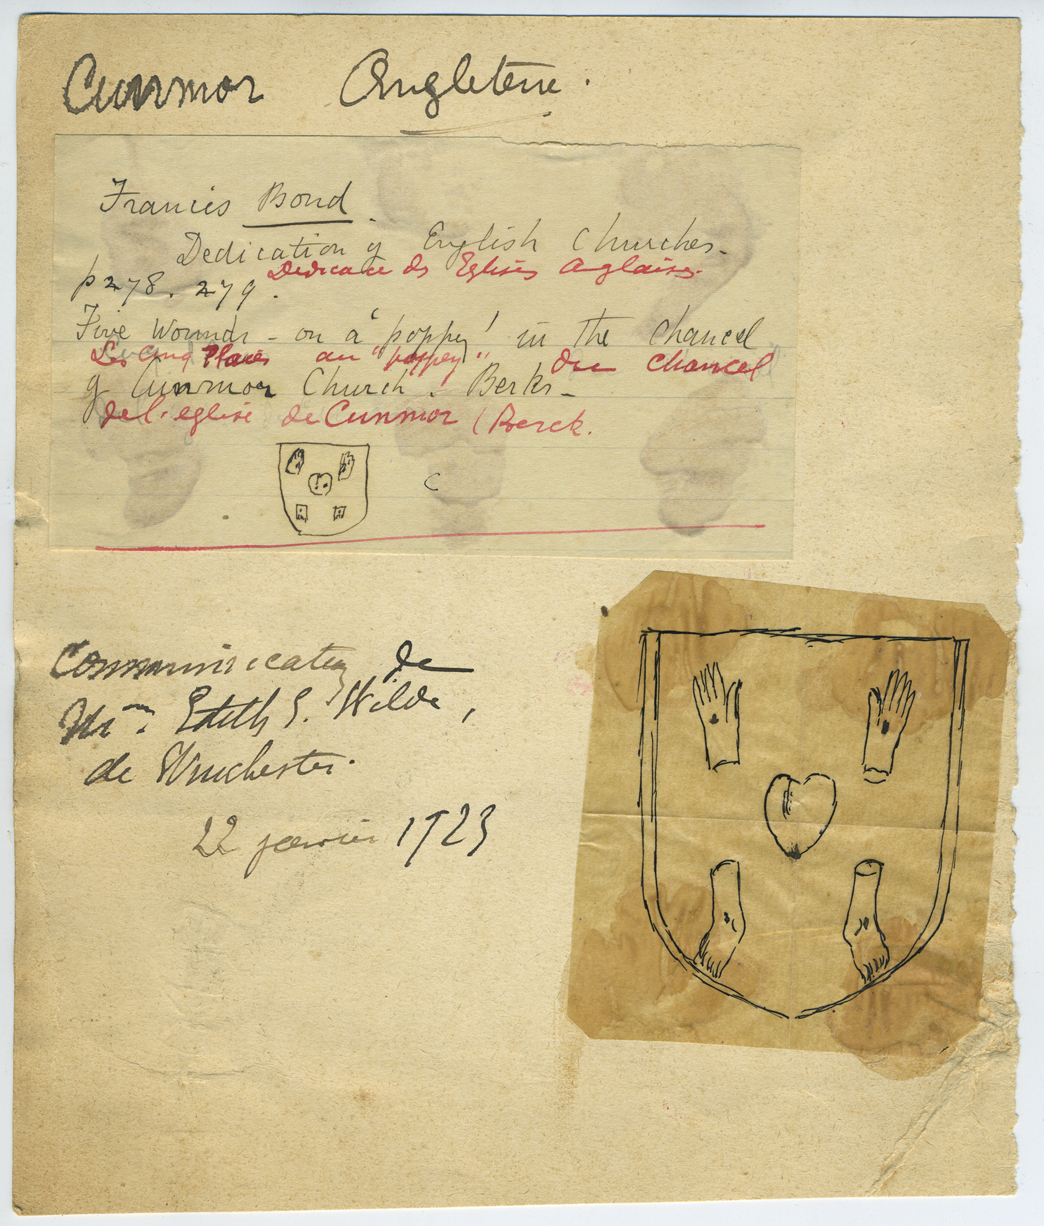 Cunmor Angleterre.
Francis Bond
Dedication of English Churches.
Dedicace des Eglises Anglaises.
p 278. 279.
Five Wounds - on a 'poppy' in the Chancel
Les cinq Plaies au "poppey" du chancel
of Cunmor Church. Berks-
de l'eglise de Cunmor (Berck.
C
Communication de
Mme Edith S. Wilde,
de Winchester.
22 janvier 1923